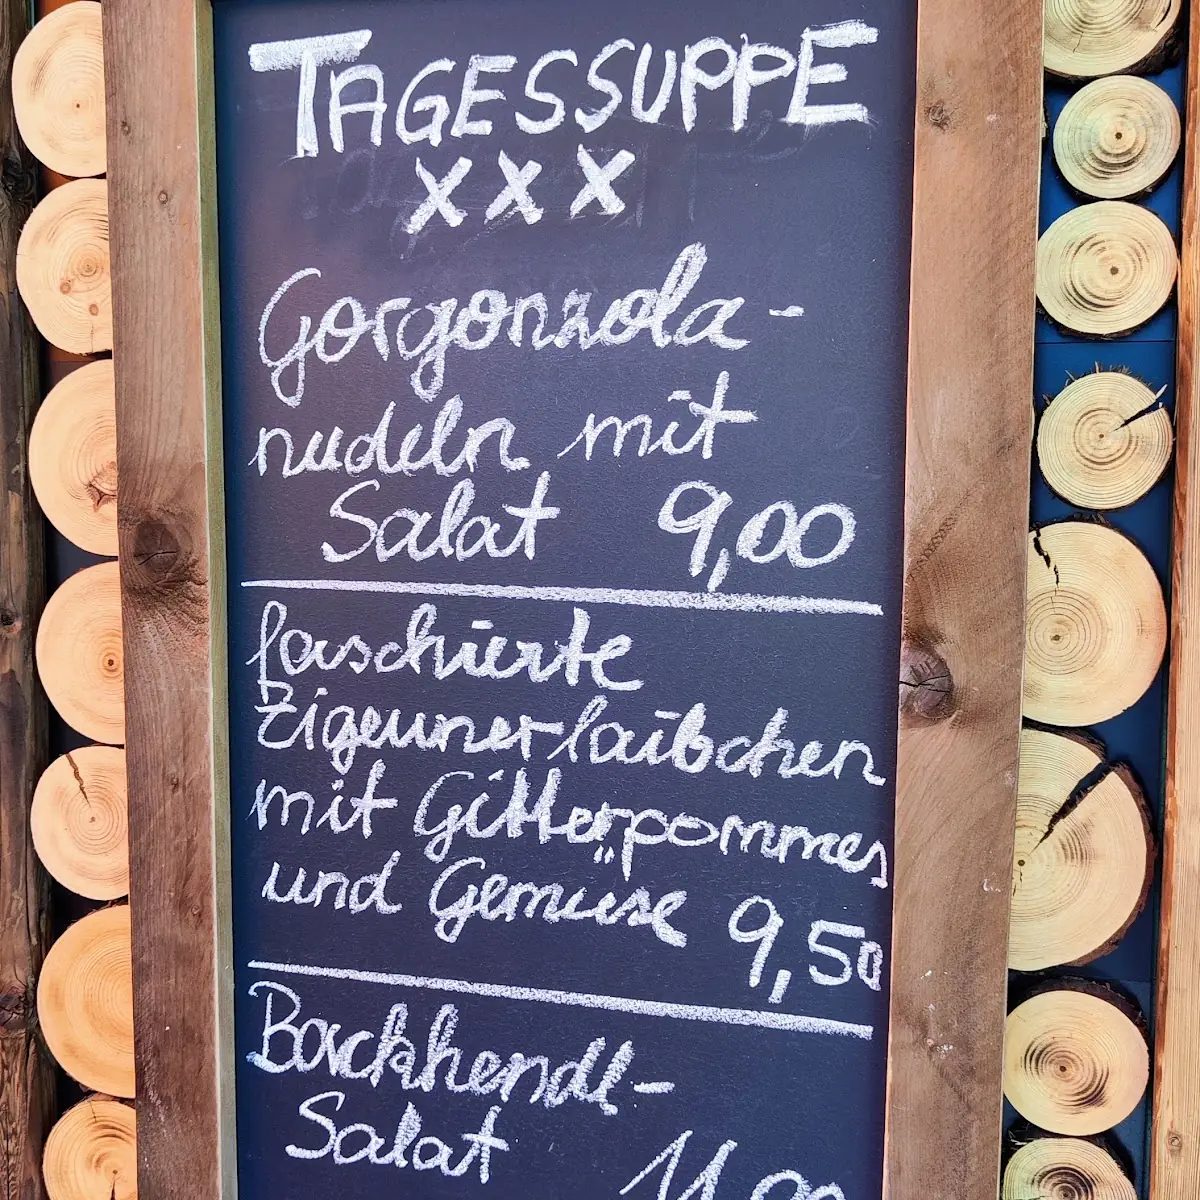 TAGESSUPPE
x x x
Gorgonzola-
nudeln mit
Salat 9,00
faschierte
Zigeunerlaibchen
mit Gitterpommes
und Gemüse 9,50
Backhendl-
Salat 11,00